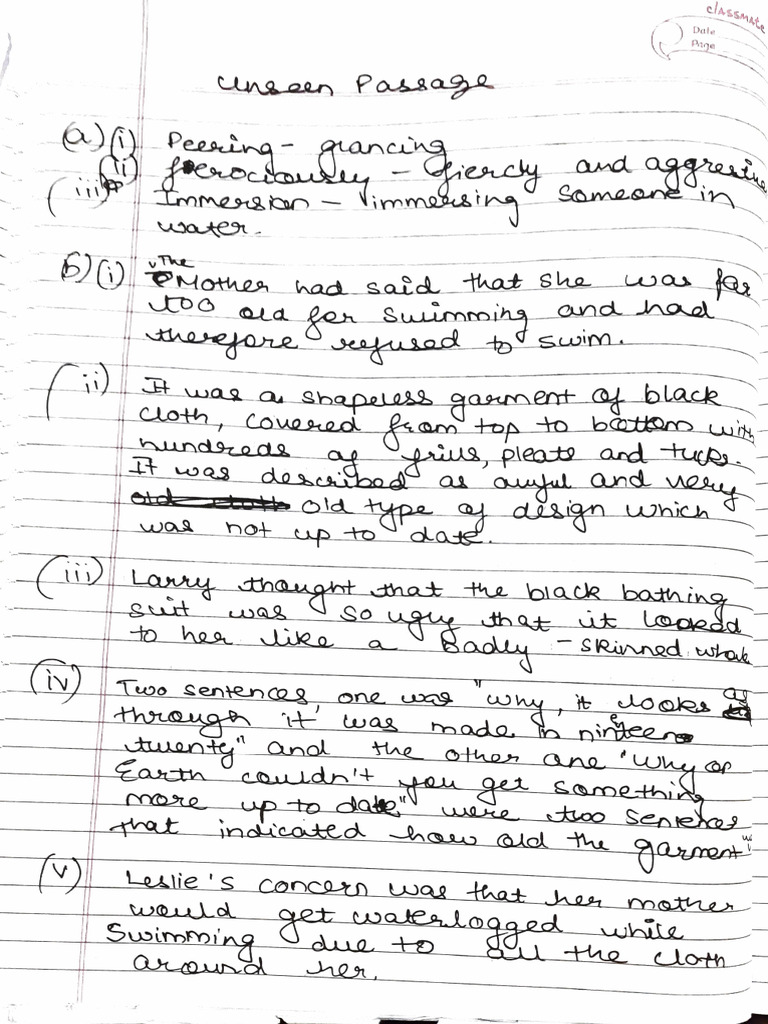 classmate
Date
Page
Unseen Passage
(a) (i) Peering - glancing
(ii) ferociously - fiercly and aggresive
(iii) Immersion - immersing someone in
water.
b) (i) The Mother had said that she was far
too old for swimming and had
therefore refused to swim.
(ii) It was a shapeless garment of black
cloth, covered from top to bottom with
hundreds of frills, pleats and tucks.
It was described as awful and very
old type of design which
was not up to date.
(iii) Larry thought that the black bathing
suit was so ugly that it looked
to her like a Badly - skinned whale
(iv) Two sentences, one was "why, it looks as
through it was made in nineteen
twenty" and the other one "why on
Earth couldn't you get something
more up to date" were two sentences
that indicated how old the garment
(v) Leslie's concern was that her mother
would get waterlogged while
Swimming due to all the cloth
around her.